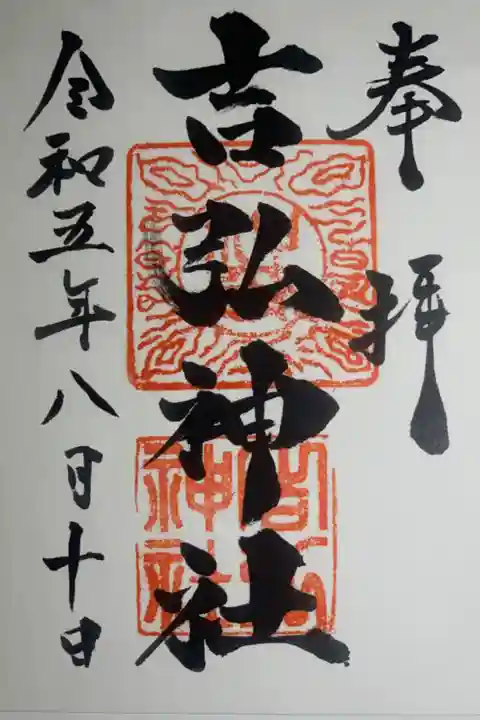 奉拝
吉弘神社
令和五年八日十日